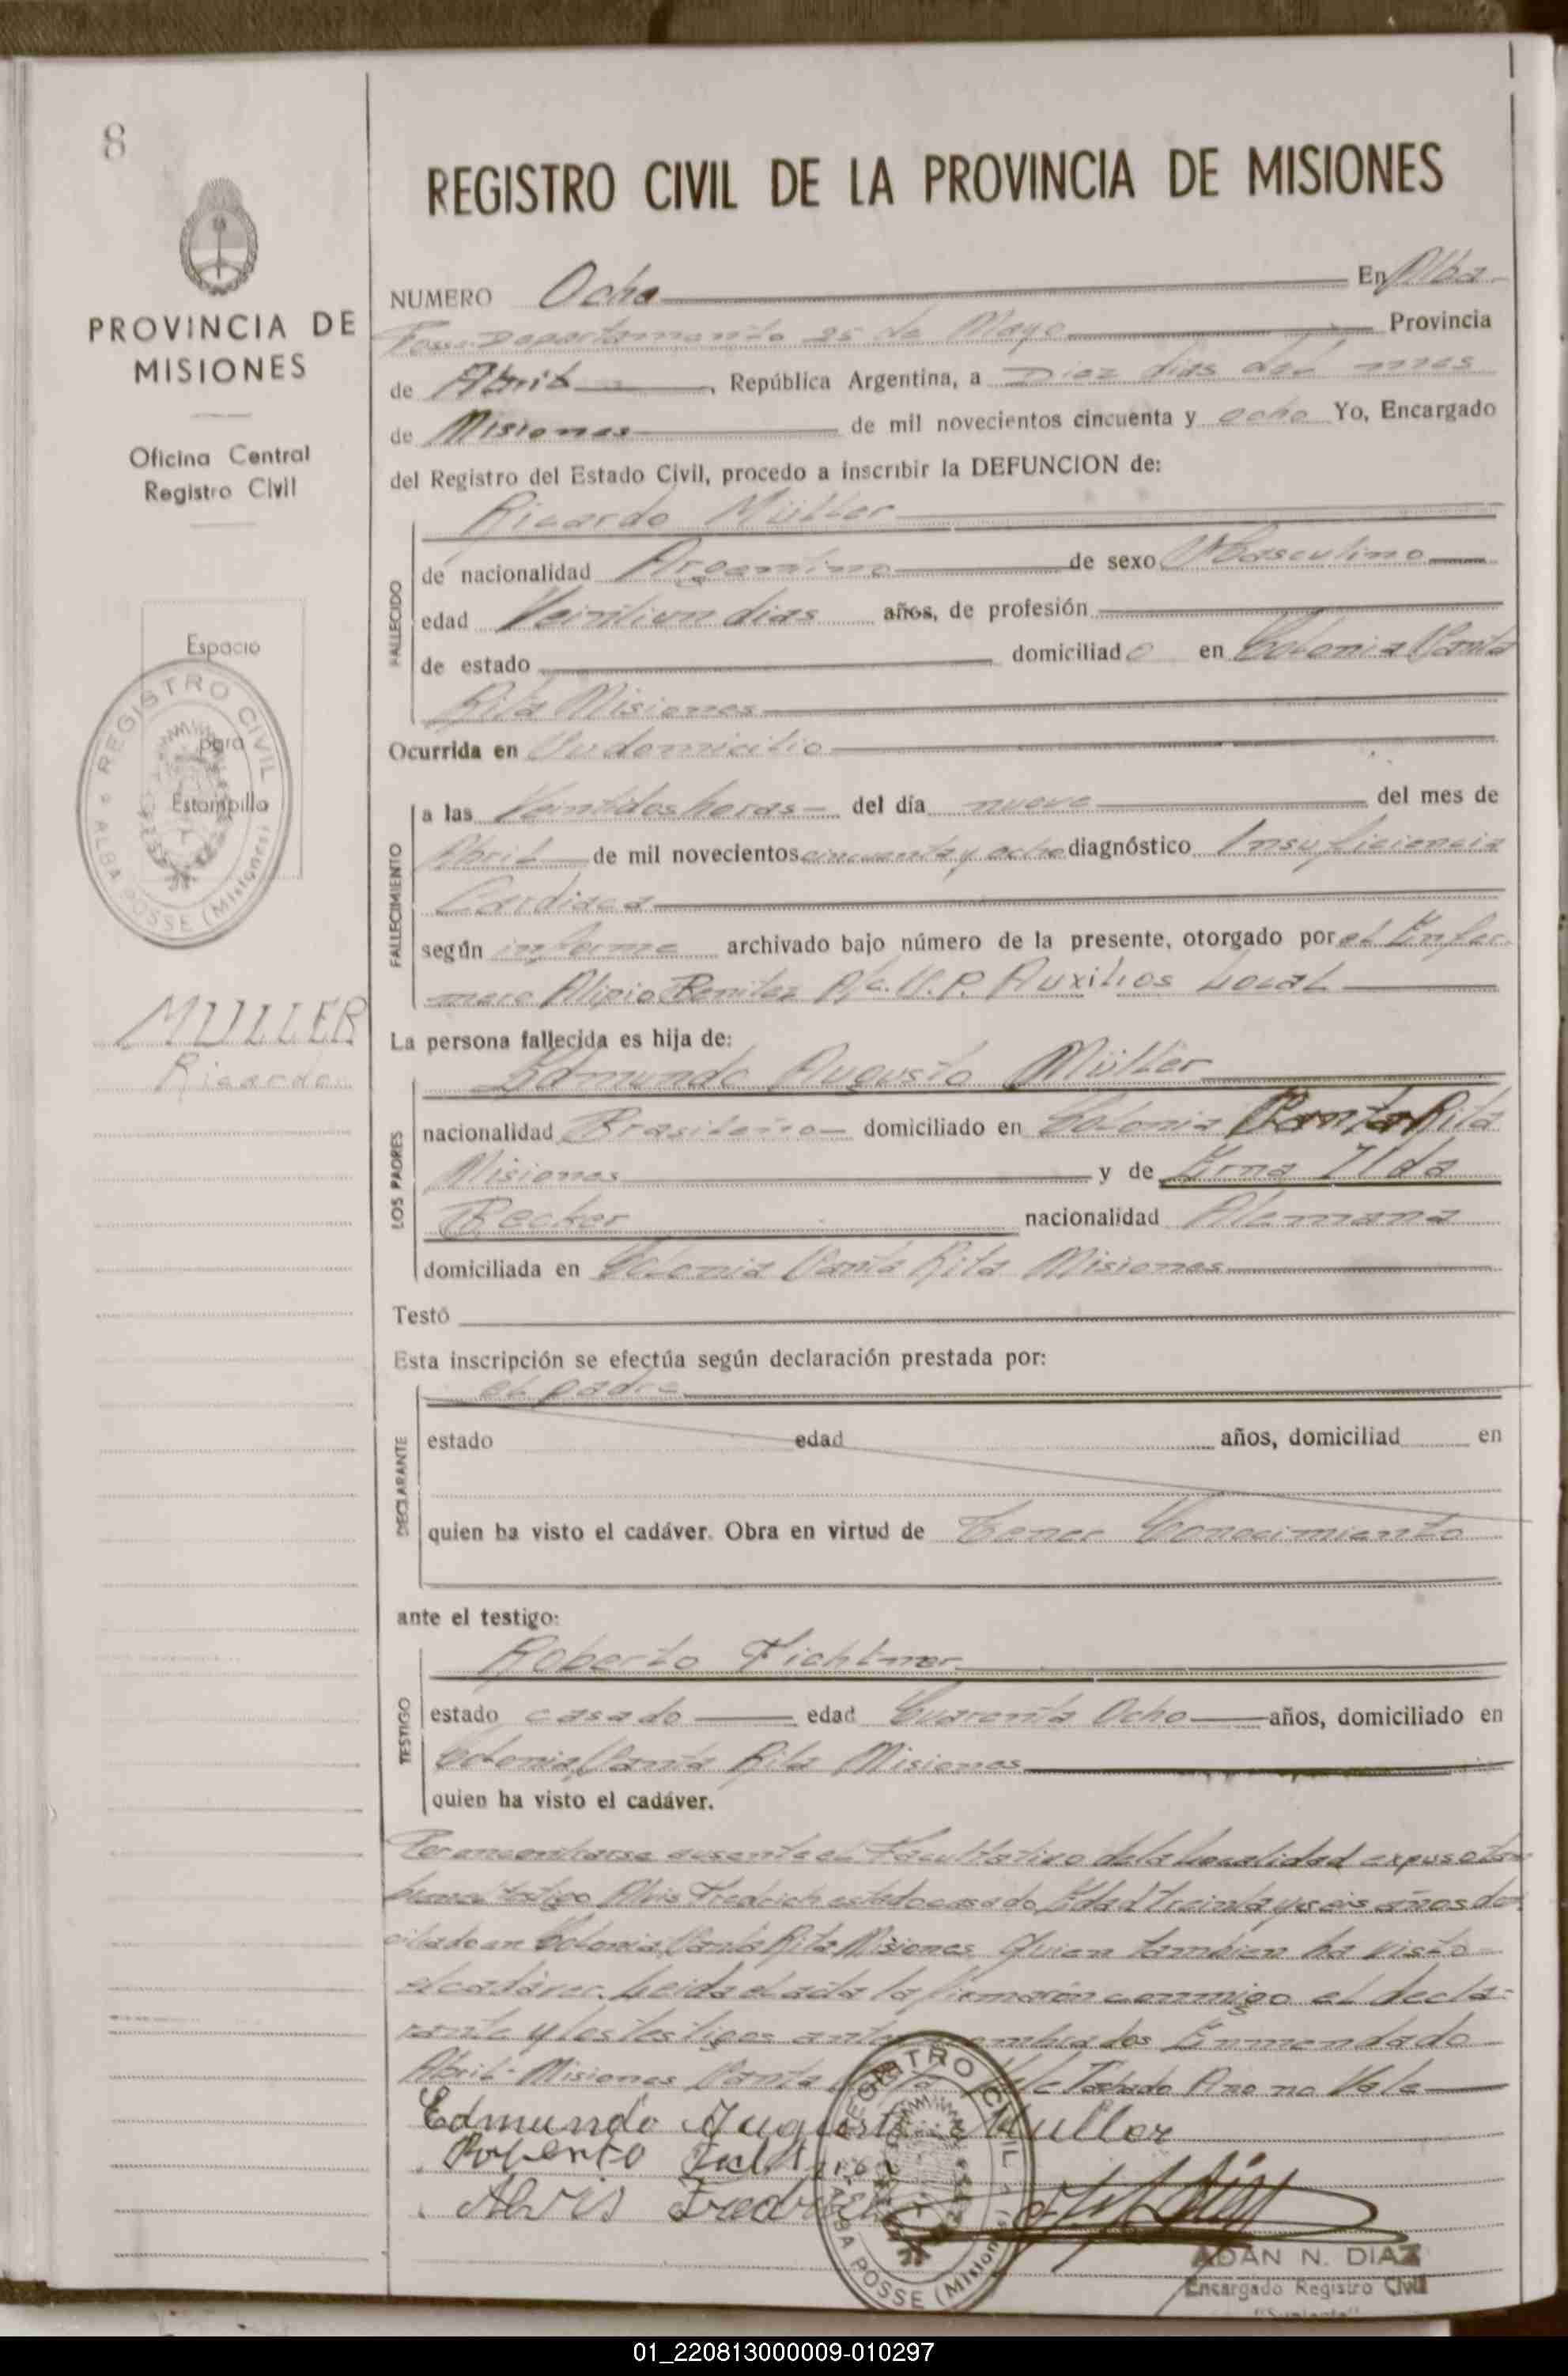 8
PROVINCIA DE
MISIONES
Oficina Central
Registro Civil
Espacio
para
Estampilla
REGISTRO CIVIL
ALBA POSSE (Misiones)
MULLER
Ricardo
REGISTRO CIVIL DE LA PROVINCIA DE MISIONES
NUMERO Ocho En Alba
Posse Departamento 25 de Mayo Provincia
de Abril, República Argentina, a Diez dias del mes
de Misiones de mil novecientos cincuenta y ocho Yo, Encargado
del Registro del Estado Civil, procedo a inscribir la DEFUNCION de:
Ricardo Müller
FALLECIDO
de nacionalidad Argentino de sexo Masculino
edad Veintiun dias años, de profesión
de estado domiciliado en Colonia Santa
Rita Misiones
Ocurrida en Su domicilio
FALLECIMIENTO
a las Veintidos horas del día nueve del mes de
Abril de mil novecientos cincuenta y ocho diagnóstico Insuficiencia
Cardiaca
según informe archivado bajo número de la presente, otorgado por el Enfer
mero Alipio Benitez A/c. S.P. Auxilios Local
La persona fallecida es hija de:
Edmundo Augusto Müller
LOS PADRES
nacionalidad Brasileño domiciliado en Colonia Santa Rita
Misiones y de Erna Ilda
Becker nacionalidad Alemana
domiciliada en Colonia Santa Rita Misiones
Testó
Esta inscripción se efectúa según declaración prestada por:
el padre
DECLARANTE
estado edad años, domiciliad en
quien ha visto el cadáver. Obra en virtud de tener Conocimiento
ante el testigo:
Roberto Fichtner
TESTIGO
estado casado edad Cuarenta Ocho años, domiciliado en
Colonia Santa Rita Misiones
quien ha visto el cadáver.
Por encontrarse ausente el Facultativo de la Localidad expuso
testigo Alvis Fredrich estado casado Edad treinta y seis años do
ciliado en Colonia Santa Rita Misiones Quien tambien ha visto
el cadáver. Leida el acta la firmarón conmigo el decla-
rante y los testigos antes Enmendado
Abril-Misiones Santa Vale Testado Ano no Vale
Edmundo Augusto Müller
Roberto Fichtner
Alvis Fredrich
REGISTRO CIVIL
ALBA POSSE (Misiones)
ADAN N. DIAZ
Encargado Registro Civil
"Suplente"
01_220813000009-010297